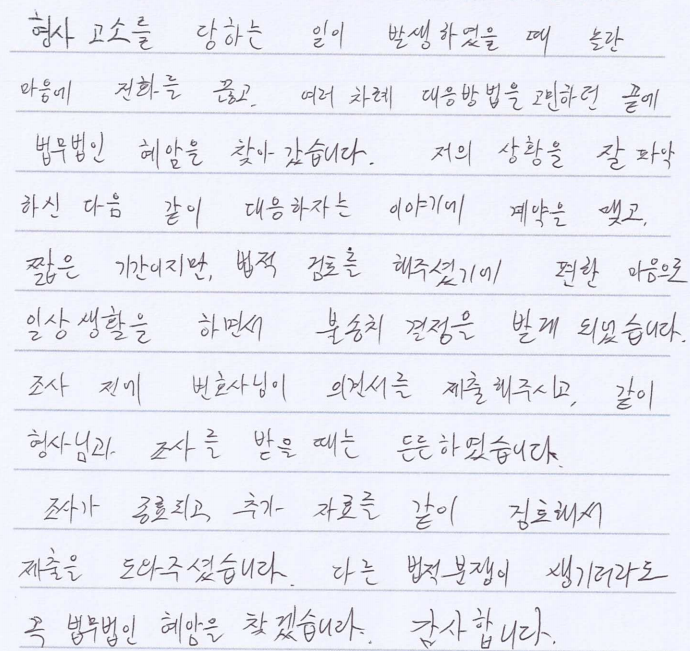 형사 고소를 당하는 일이 발생하였을 때 놀란
마음에 전화를 끊고, 여러 차례 대응방법을 고민하던 끝에
법무법인 혜암을 찾아 갔습니다. 저의 상황을 잘 파악
하신 다음 같이 대응하자는 이야기에 계약을 맺고,
짧은 기간이지만, 법적 검토를 해주셨기에 편한 마음으로
일상생활을 하면서 불송치 결정을 받게 되었습니다.
조사 전에 변호사님이 의견서를 제출해주시고, 같이
형사님과 조사를 받을 때는 든든하였습니다.
조사가 종료되고, 추가 자료를 같이 검토해서
제출을 도와주셨습니다. 다른 법적분쟁이 생기더라도
꼭 법무법인 혜암을 찾겠습니다. 감사합니다.